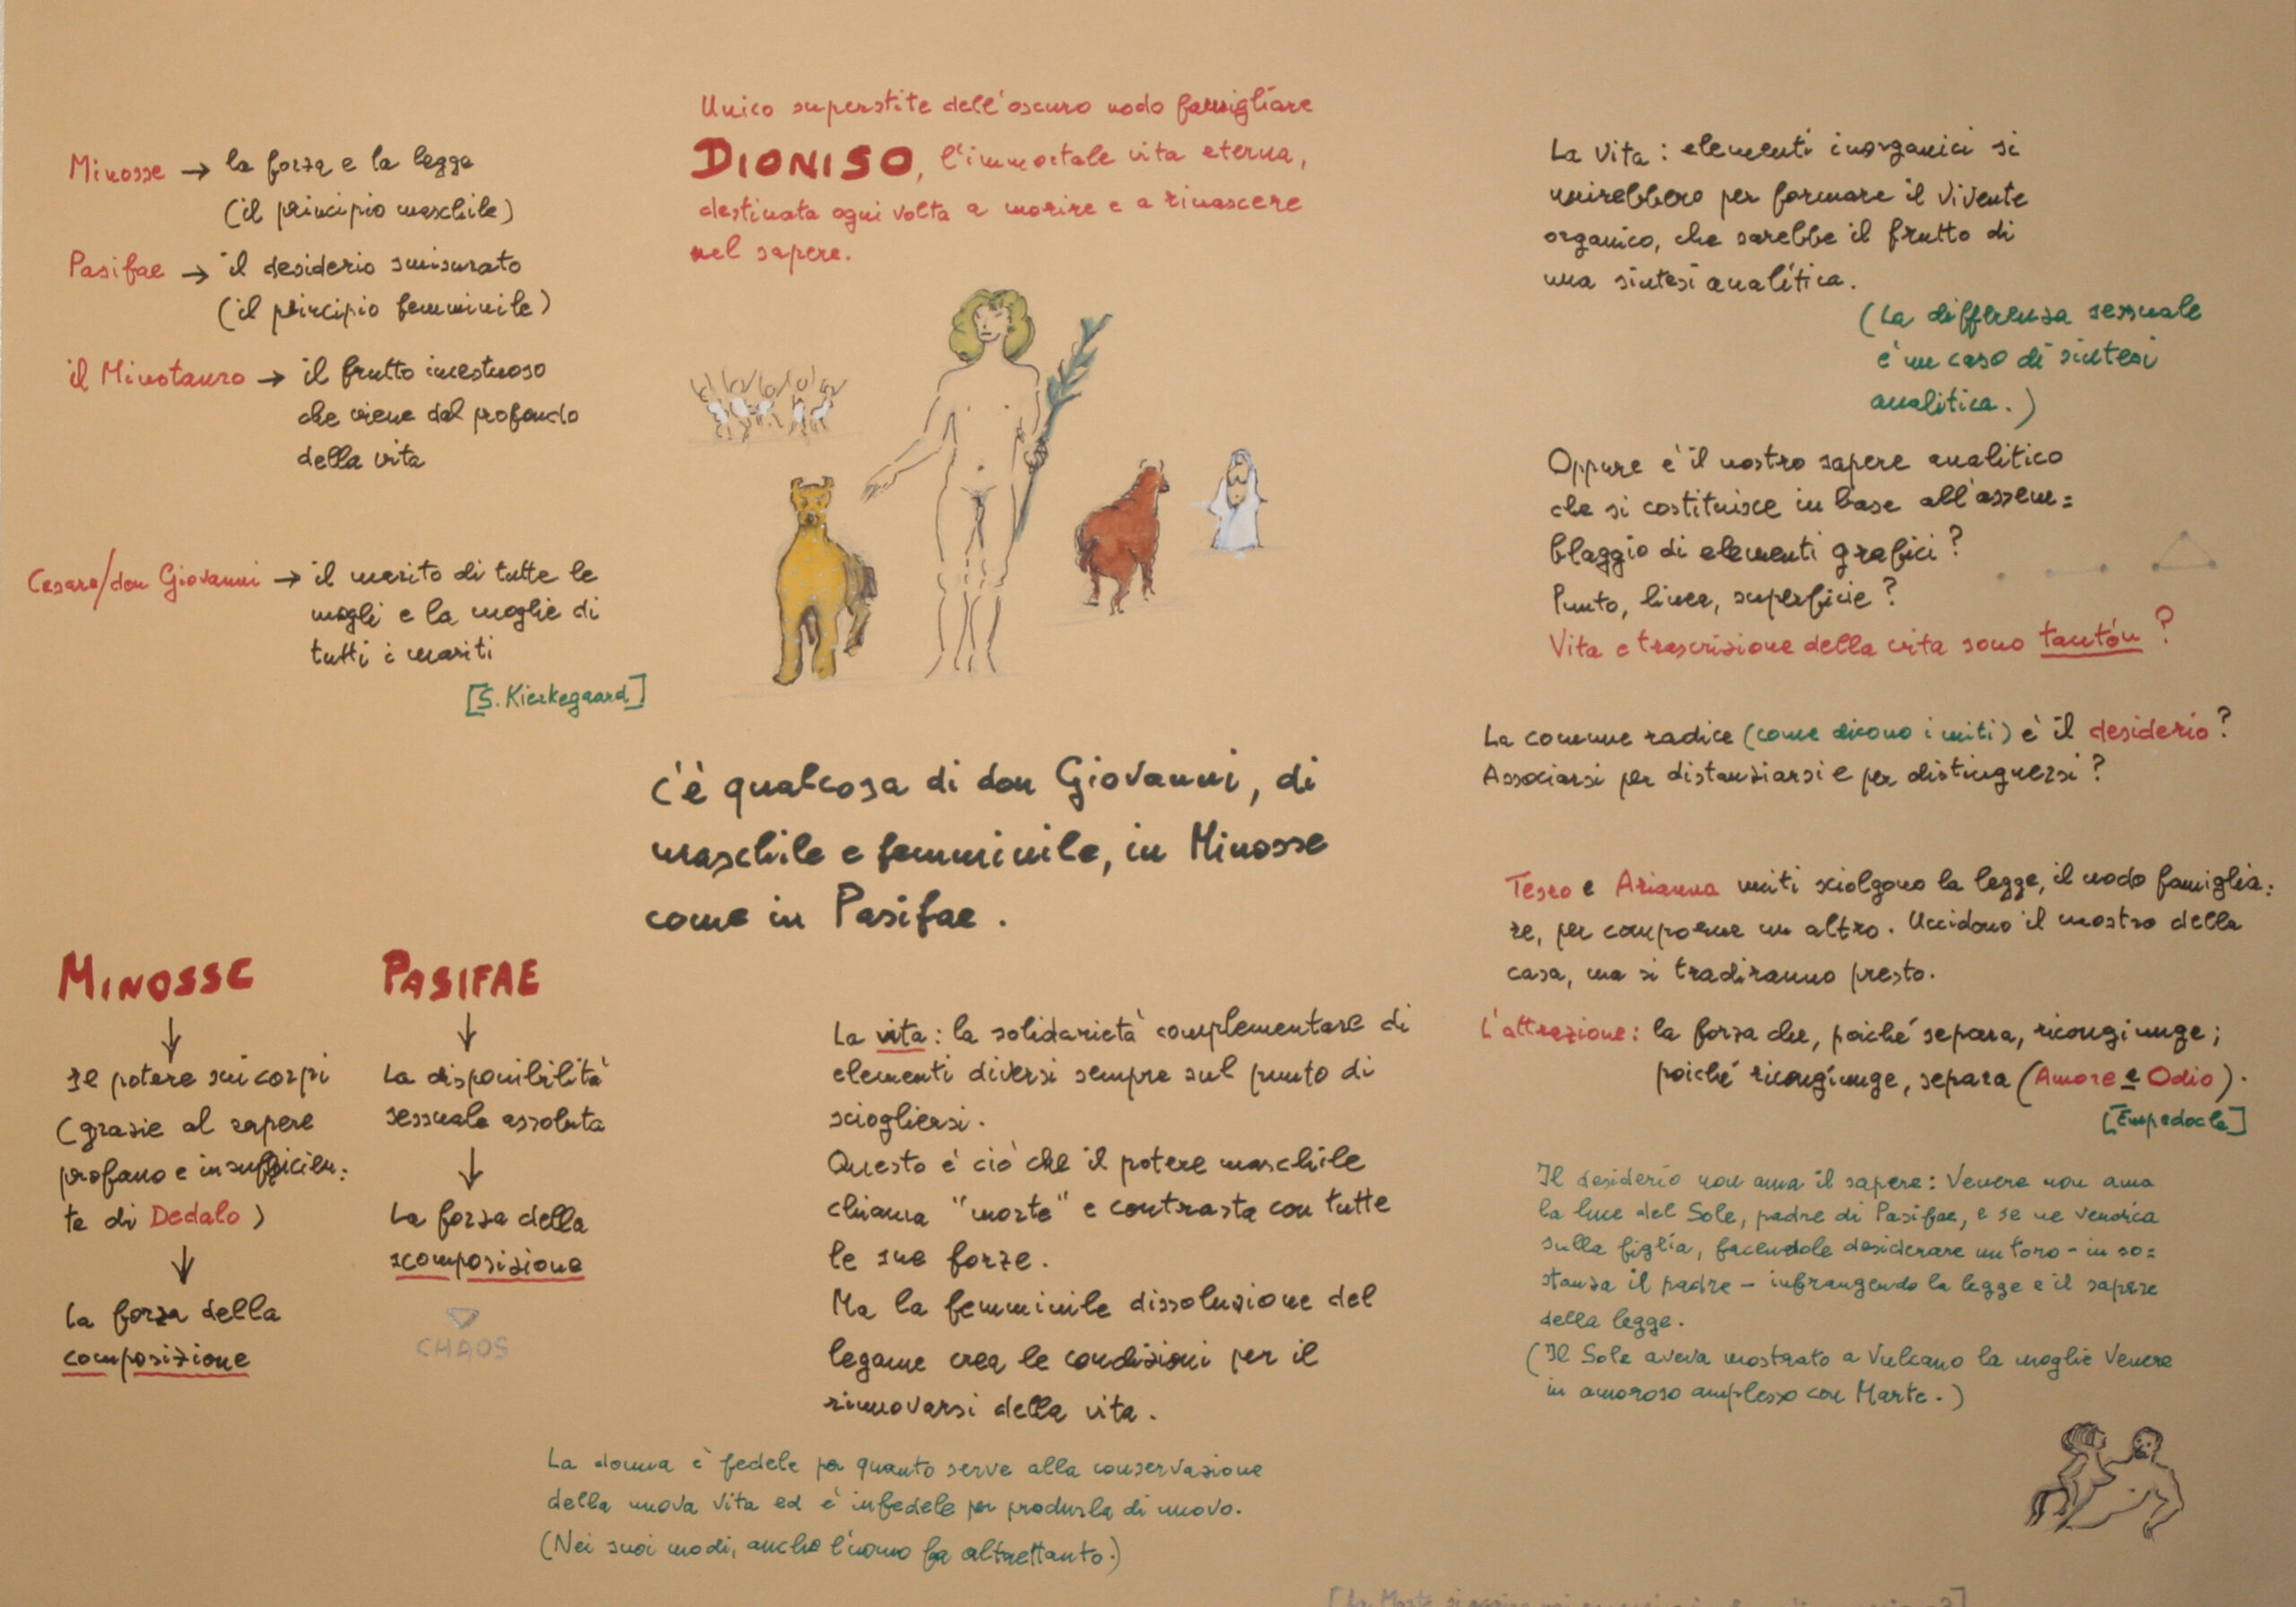 Minosse → la forza e la legge
(il principio maschile)
Pasifae → il desiderio smisurato
(il principio femminile)
il Minotauro → il frutto incestuoso
che viene dal profondo
della vita
Cesare/don Giovanni → il marito di tutte le
mogli e la moglie di
tutti i mariti
[S. Kierkegaard]
Unico superstite dell'oscuro nodo famigliare
DIONISO, l'immortale vita eterna,
destinata ogni volta a morire e a rinascere
nel sapere.
c'è qualcosa di don Giovanni, di
maschile e femminile, in Minosse
come in Pasifae.
MINOSSE
↓
Il potere sui corpi
(grazie al sapere
profano e insufficien=
te di Dedalo)
↓
La forza della
composizione
PASIFAE
↓
La disponibilità
sessuale assoluta
↓
La forza della
scomposizione
CHAOS
La vita: la solidarietà complementare di
elementi diversi sempre sul punto di
sciogliersi.
Questo è ciò che il potere maschile
chiama "morte" e contrasta con tutte
le sue forze.
Ma la femminile dissoluzione del
legame crea le condizioni per il
rinnovarsi della vita.
La donna è fedele per quanto serve alla conservazione
della nuova vita ed è infedele per produrla di nuovo.
(Nei suoi modi, anche l'uomo fa altrettanto.)
La vita: elementi inorganici si
unirebbero per formare il vivente
organico, che sarebbe il frutto di
una sintesi analitica.
(La differenza sessuale
è un caso di sintesi
analitica.)
Oppure è il nostro sapere analitico
che si costituisce in base all'assem=
blaggio di elementi grafici?
Punto, linea, superficie?
Vita e trascrizione della vita sono tautón?
La comune radice (come dicono i miti) è il desiderio?
Associarsi per distanziarsi e per distinguersi?
Teseo e Arianna uniti sciolgono la legge, il nodo famiglia=
re, per comporne un altro. Uccidono il mostro della
casa, ma si tradiranno presto.
L'attrazione: la forza che, poiché separa, ricongiunge;
poiché ricongiunge, separa (Amore e Odio).
[Empedocle]
Il desiderio non ama il sapere: Venere non ama
la luce del Sole, padre di Pasifae, e se ne vendica
sulla figlia, facendole desiderare un toro - in so=
stanza il padre - infrangendo la legge e il sapere
della legge.
(Il Sole aveva mostrato a Vulcano la moglie Venere
in amoroso amplesso con Marte.)
[La Morte si